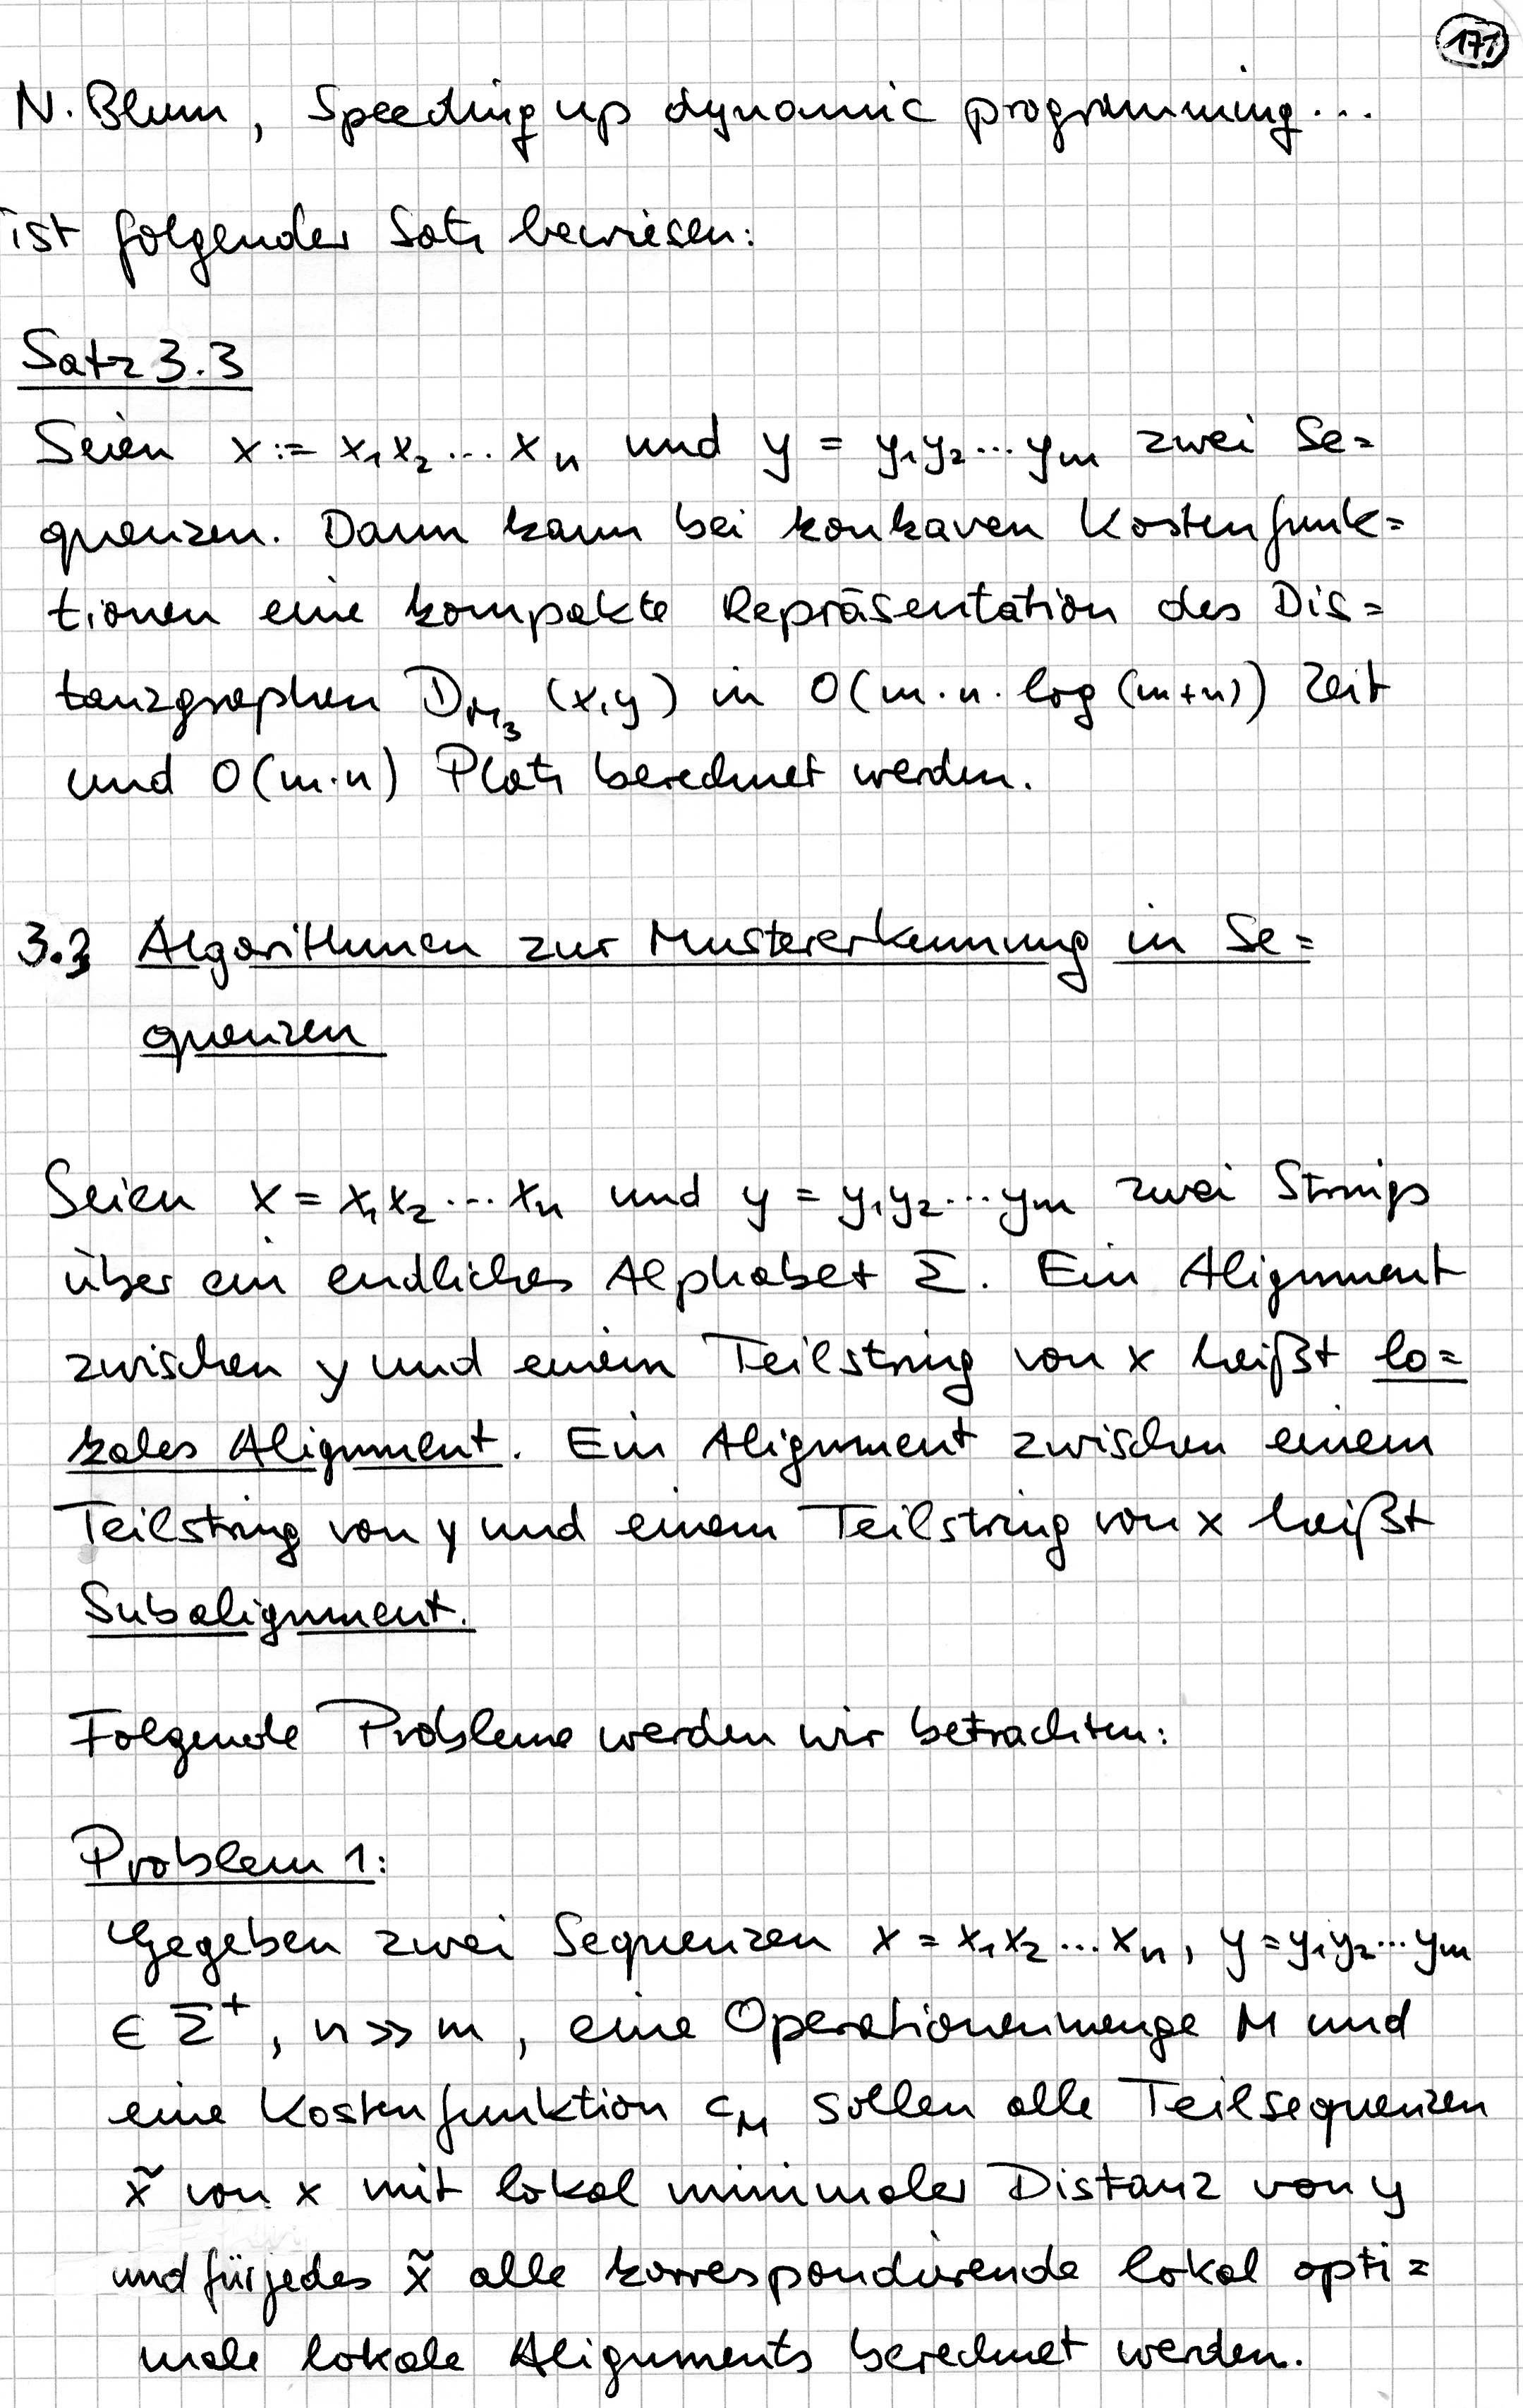 171
N. Blum, Speeding up dynamic programming...
ist folgender Satz bewiesen:
Satz 3.3
Seien x := x₁x₂...xₙ und y = y₁y₂...yₘ zwei Se=
quenzen. Dann kann bei konkaven Kostenfunk=
tionen eine kompakte Repräsentation des Dis=
tanzgraphen D_{M₃}(x,y) in O(m·n·log(m+n)) Zeit
und O(m·n) Platz berechnet werden.
3.3 Algorithmen zur Mustererkennung in Se=
quenzen
Seien x = x₁x₂...xₙ und y = y₁y₂...yₘ zwei Strings
über ein endliches Alphabet Σ. Ein Alignment
zwischen y und einem Teilstring von x heißt lo=
kales Alignment. Ein Alignment zwischen einem
Teilstring von y und einem Teilstring von x heißt
Subalignment.
Folgende Probleme werden wir betrachten:
Problem 1:
Gegeben zwei Sequenzen x = x₁x₂...xₙ, y = y₁y₂...yₘ
∈ Σ⁺, n >> m, eine Operationenmenge M und
eine Kostenfunktion c_M sollen alle Teilsequenzen
x̃ von x mit lokal minimaler Distanz von y
und für jedes x̃ alle korrespondierende lokal opti=
male lokale Alignments berechnet werden.